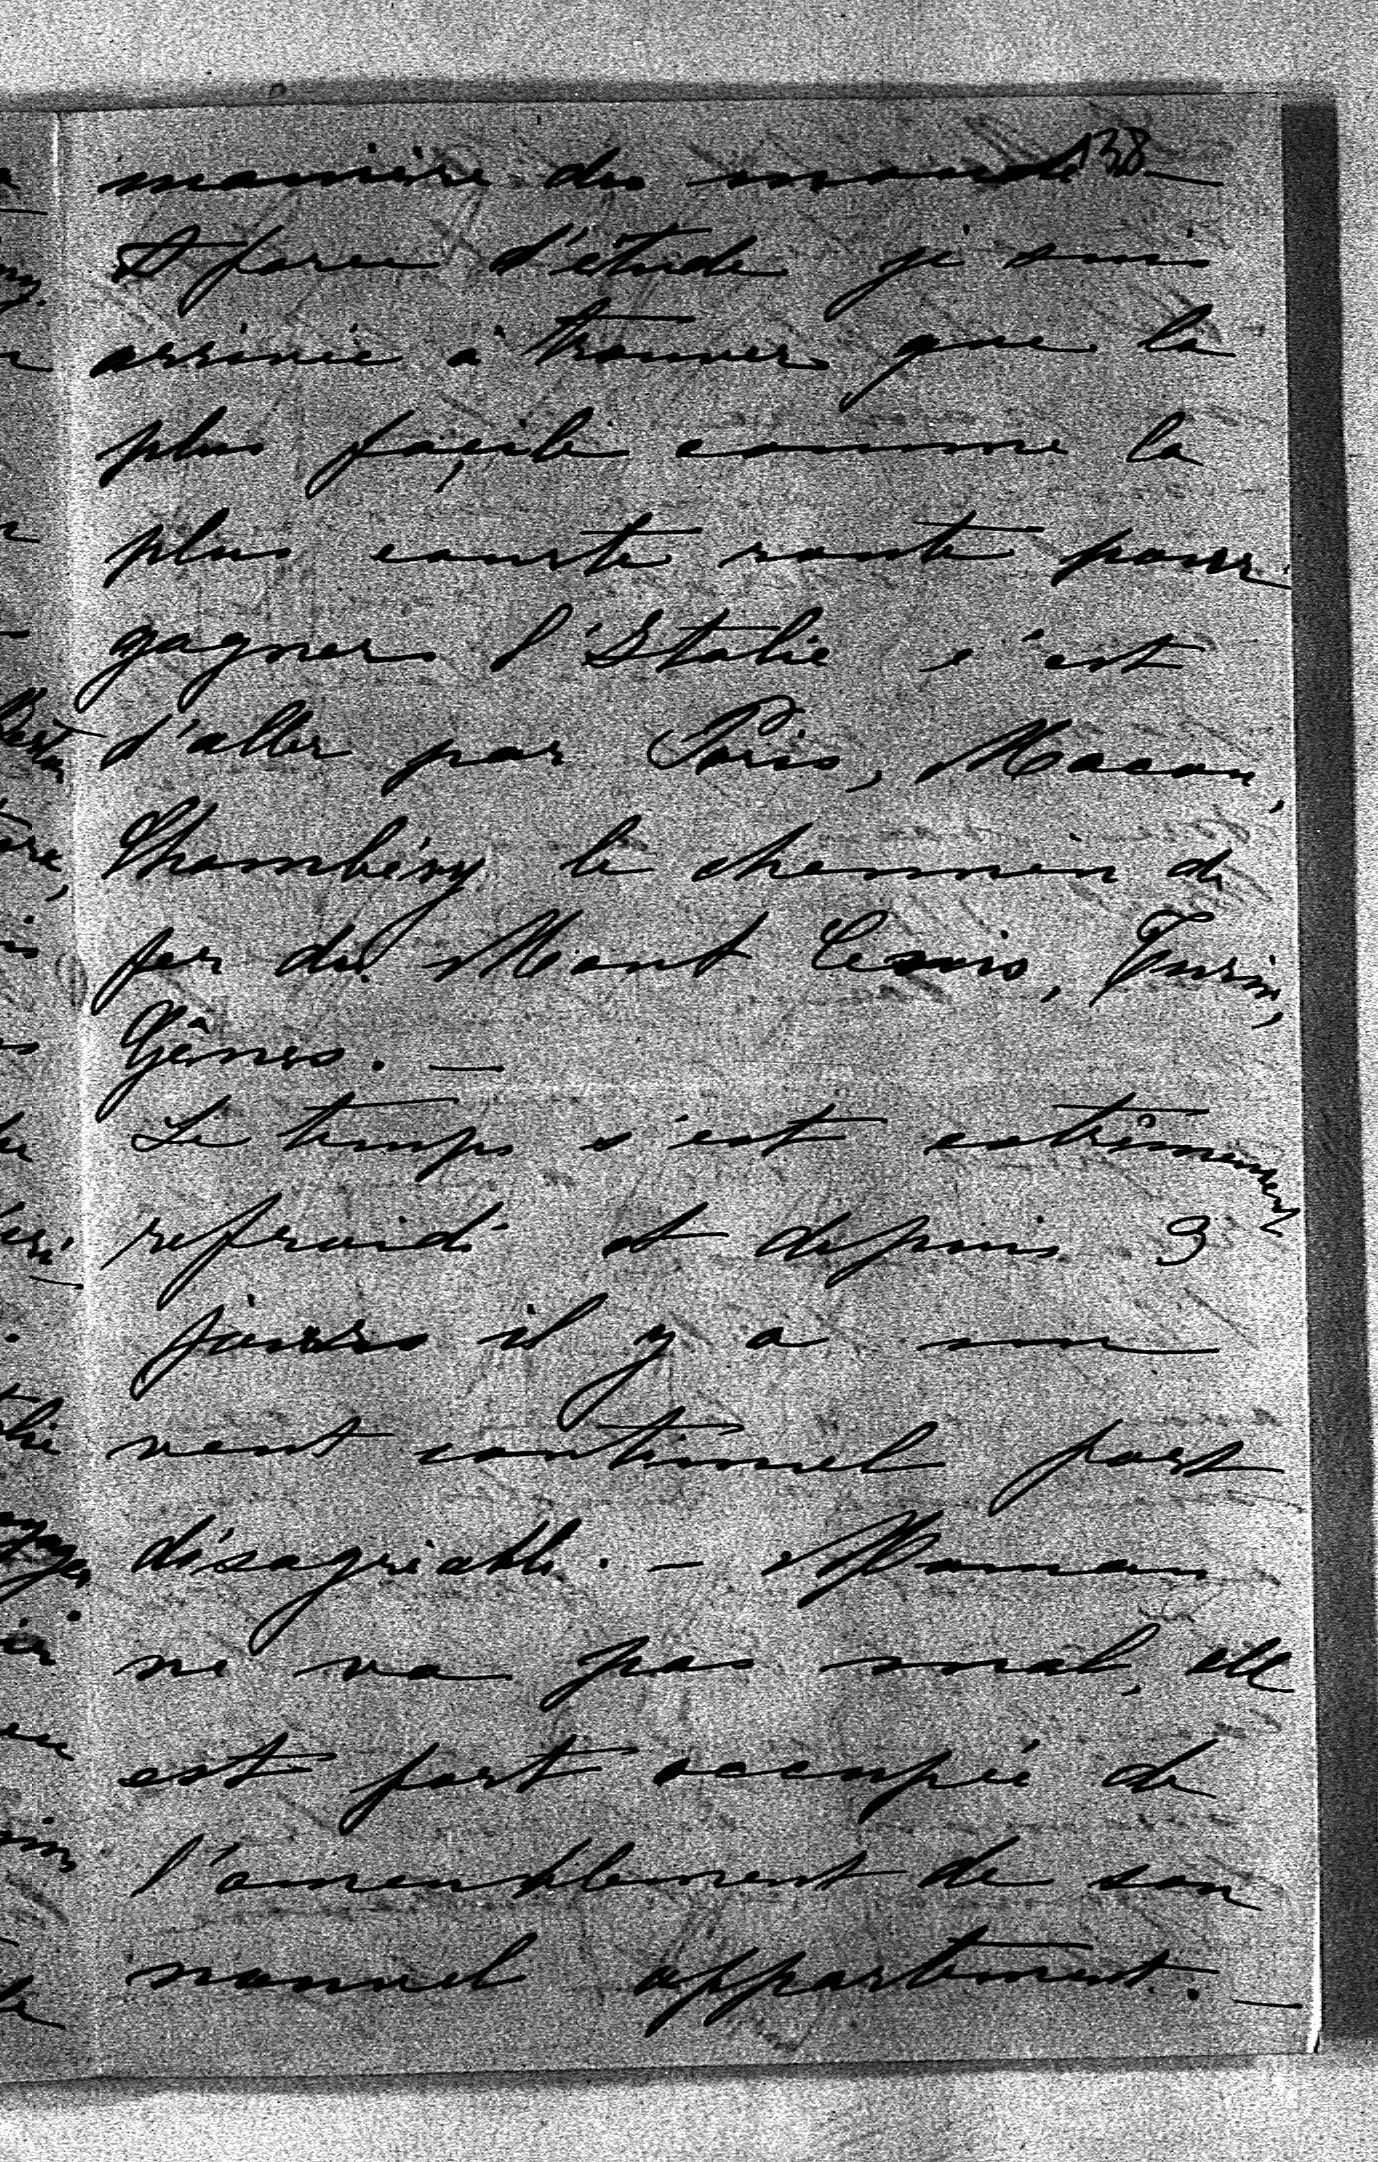 138
manière du monde —
A force d'étude je suis
arrivée à trouver que la
plus façile comme la
plus courte route pour
gagner l'Italie c'est
d'aller par Paris, Macon,
Chambéry le chemin de
fer du Mont Cenis, Turin,
Gênes. —
Le temps s'est extrêmement
refroidi et depuis 3
jours il y a un
vent continuel fort
désagréable. — Maman
ne va pas mal, elle
est fort occupée de
l'ameublement de son
nouvel appartement. —